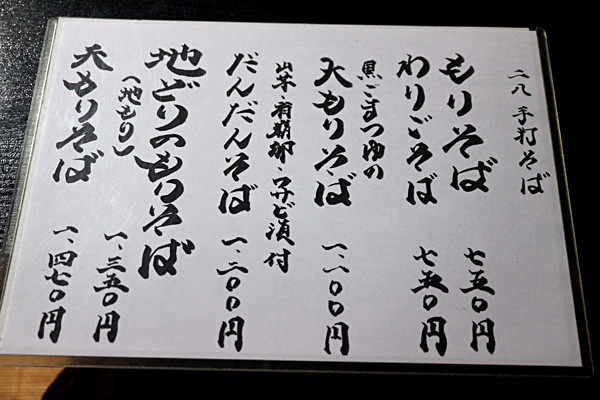 二八 手打そば
もりそば 七五〇円
わりごそば 七五〇円
黒ごまつゆの
大もりそば 一、一〇〇円
山芋・・ワサビ漬付
だんだんそば 一、二〇〇円
地どりのもりそば 一、三五〇円
(地もり)
天もりそば 一、四七〇円